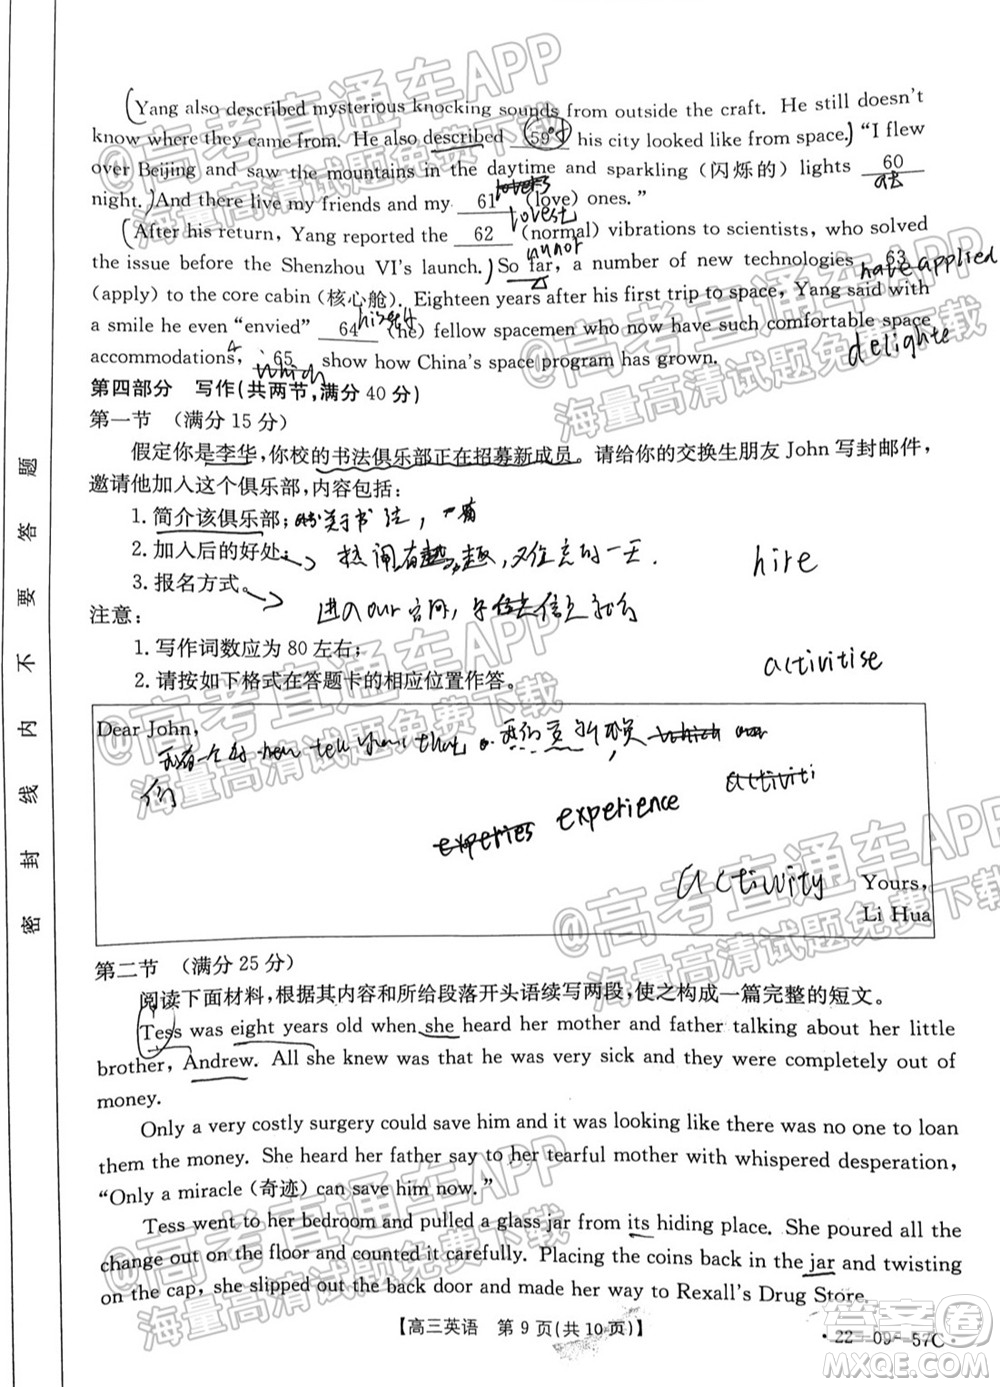 Yang also described mysterious knocking sounds from outside the craft. He still doesn't
know where they came from. He also described 59 his city looked like from space. "I flew
over Beijing and saw the mountains in the daytime and sparkling (闪烁的) lights 60
at
night. And there live my friends and my 61 (love) ones."
lovest
After his return, Yang reported the 62 (normal) vibrations to scientists, who solved
unnor
the issue before the Shenzhou VI's launch. So far, a number of new technologies 63
have applied
(apply) to the core cabin (核心舱). Eighteen years after his first trip to space, Yang said with
a smile he even "envied" 64 (he) fellow spacemen who now have such comfortable space
delighte
accommodations, 65 show how China's space program has grown.
which
第四部分 写作(共两节,满分 40 分)
第一节 (满分 15 分)
假定你是李华,你校的书法俱乐部正在招募新成员。请给你的交换生朋友 John 写封邮件,
邀请他加入这个俱乐部,内容包括:
1. 简介该俱乐部;
2. 加入后的好处;
热闹有趣,难忘的一天.
hire
3. 报名方式。
进入our官网,
注意:
1. 写作词数应为 80 左右;
activitise
2. 请按如下格式在答题卡的相应位置作答。
Dear John,
们
activiti
experies experience
activity
Yours,
Li Hua
第二节 (满分 25 分)
阅读下面材料,根据其内容和所给段落开头语续写两段,使之构成一篇完整的短文。
Tess was eight years old when she heard her mother and father talking about her little
brother, Andrew. All she knew was that he was very sick and they were completely out of
money.
Only a very costly surgery could save him and it was looking like there was no one to loan
them the money. She heard her father say to her tearful mother with whispered desperation,
"Only a miracle (奇迹) can save him now."
Tess went to her bedroom and pulled a glass jar from its hiding place. She poured all the
change out on the floor and counted it carefully. Placing the coins back in the jar and twisting
on the cap, she slipped out the back door and made her way to Rexall's Drug Store.
【高三英语 第 9 页(共 10 页)】
·22-09-57C·
密 封 线 内 不 要 答 题
@高考直通车APP
海量高清试题免费下载
@高考直通车APP
海量高清试题免费下载
@高考直通车APP
海量高清试题免费下载
@高考直通车APP
海量高清试题免费下载
@高考直通车APP
海量高清试题免费下载
答案圈
MXQE.COM